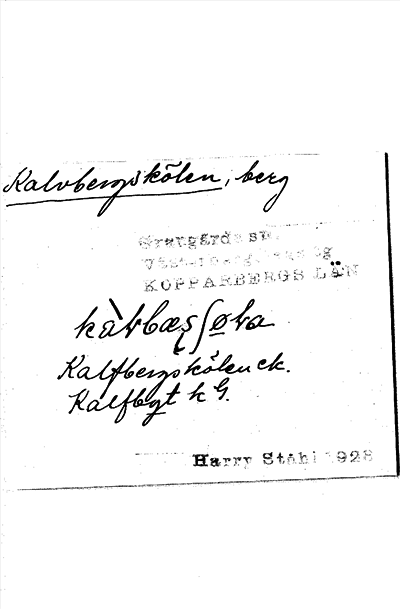 Kalvbergskölen, berg
Grangärde sn.
Västerbergslags og
KOPPARBERGS LÄN
kàlvbæʂʃøla
Kalfbergskölen ck.
Kalfbgt k G.
Harry Ståhl 1928